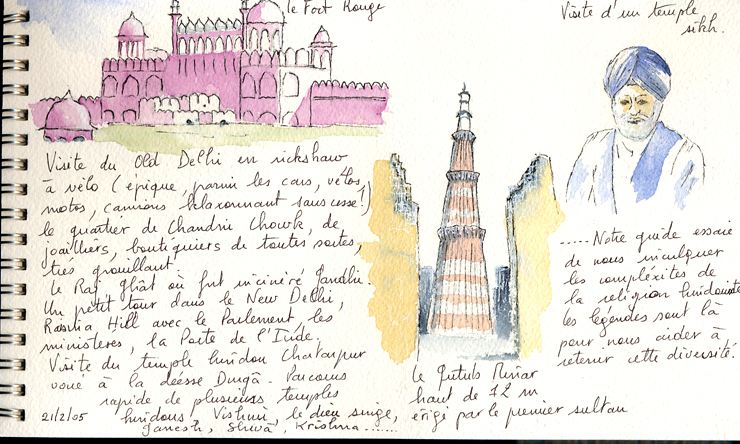 le Fort Rouge
Visite d'un temple
sikh.
Visite du Old Delhi en rickshaw
à vélo (épique, parmi les cars, vélos,
motos, camions klaxonnant sans cesse!)
le quartier de Chandni Chowk, de
joailliers, boutiquiers de toutes sortes,
très grouillant
le Raj Ghât où fut incinéré Gandhi.
Un petit tour dans le New Delhi,
Rasina Hill avec le Parlement, les
ministères, la Porte de l'Inde.
Visite du temple hindou Chatarpur
voué à la déesse Durgâ. Parcours
rapide de plusieurs temples
21/2/05 hindous, Vishnu, le dieu singe,
Ganesh, Shiva, Krishna......
le Qutub Minar
haut de 72 m
érigé par le premier sultan
.....Notre guide essaie
de nous inculquer
les compléxites de
la religion hindouiste
les légendes sont là
pour nous aider à
retenir cette diversité.